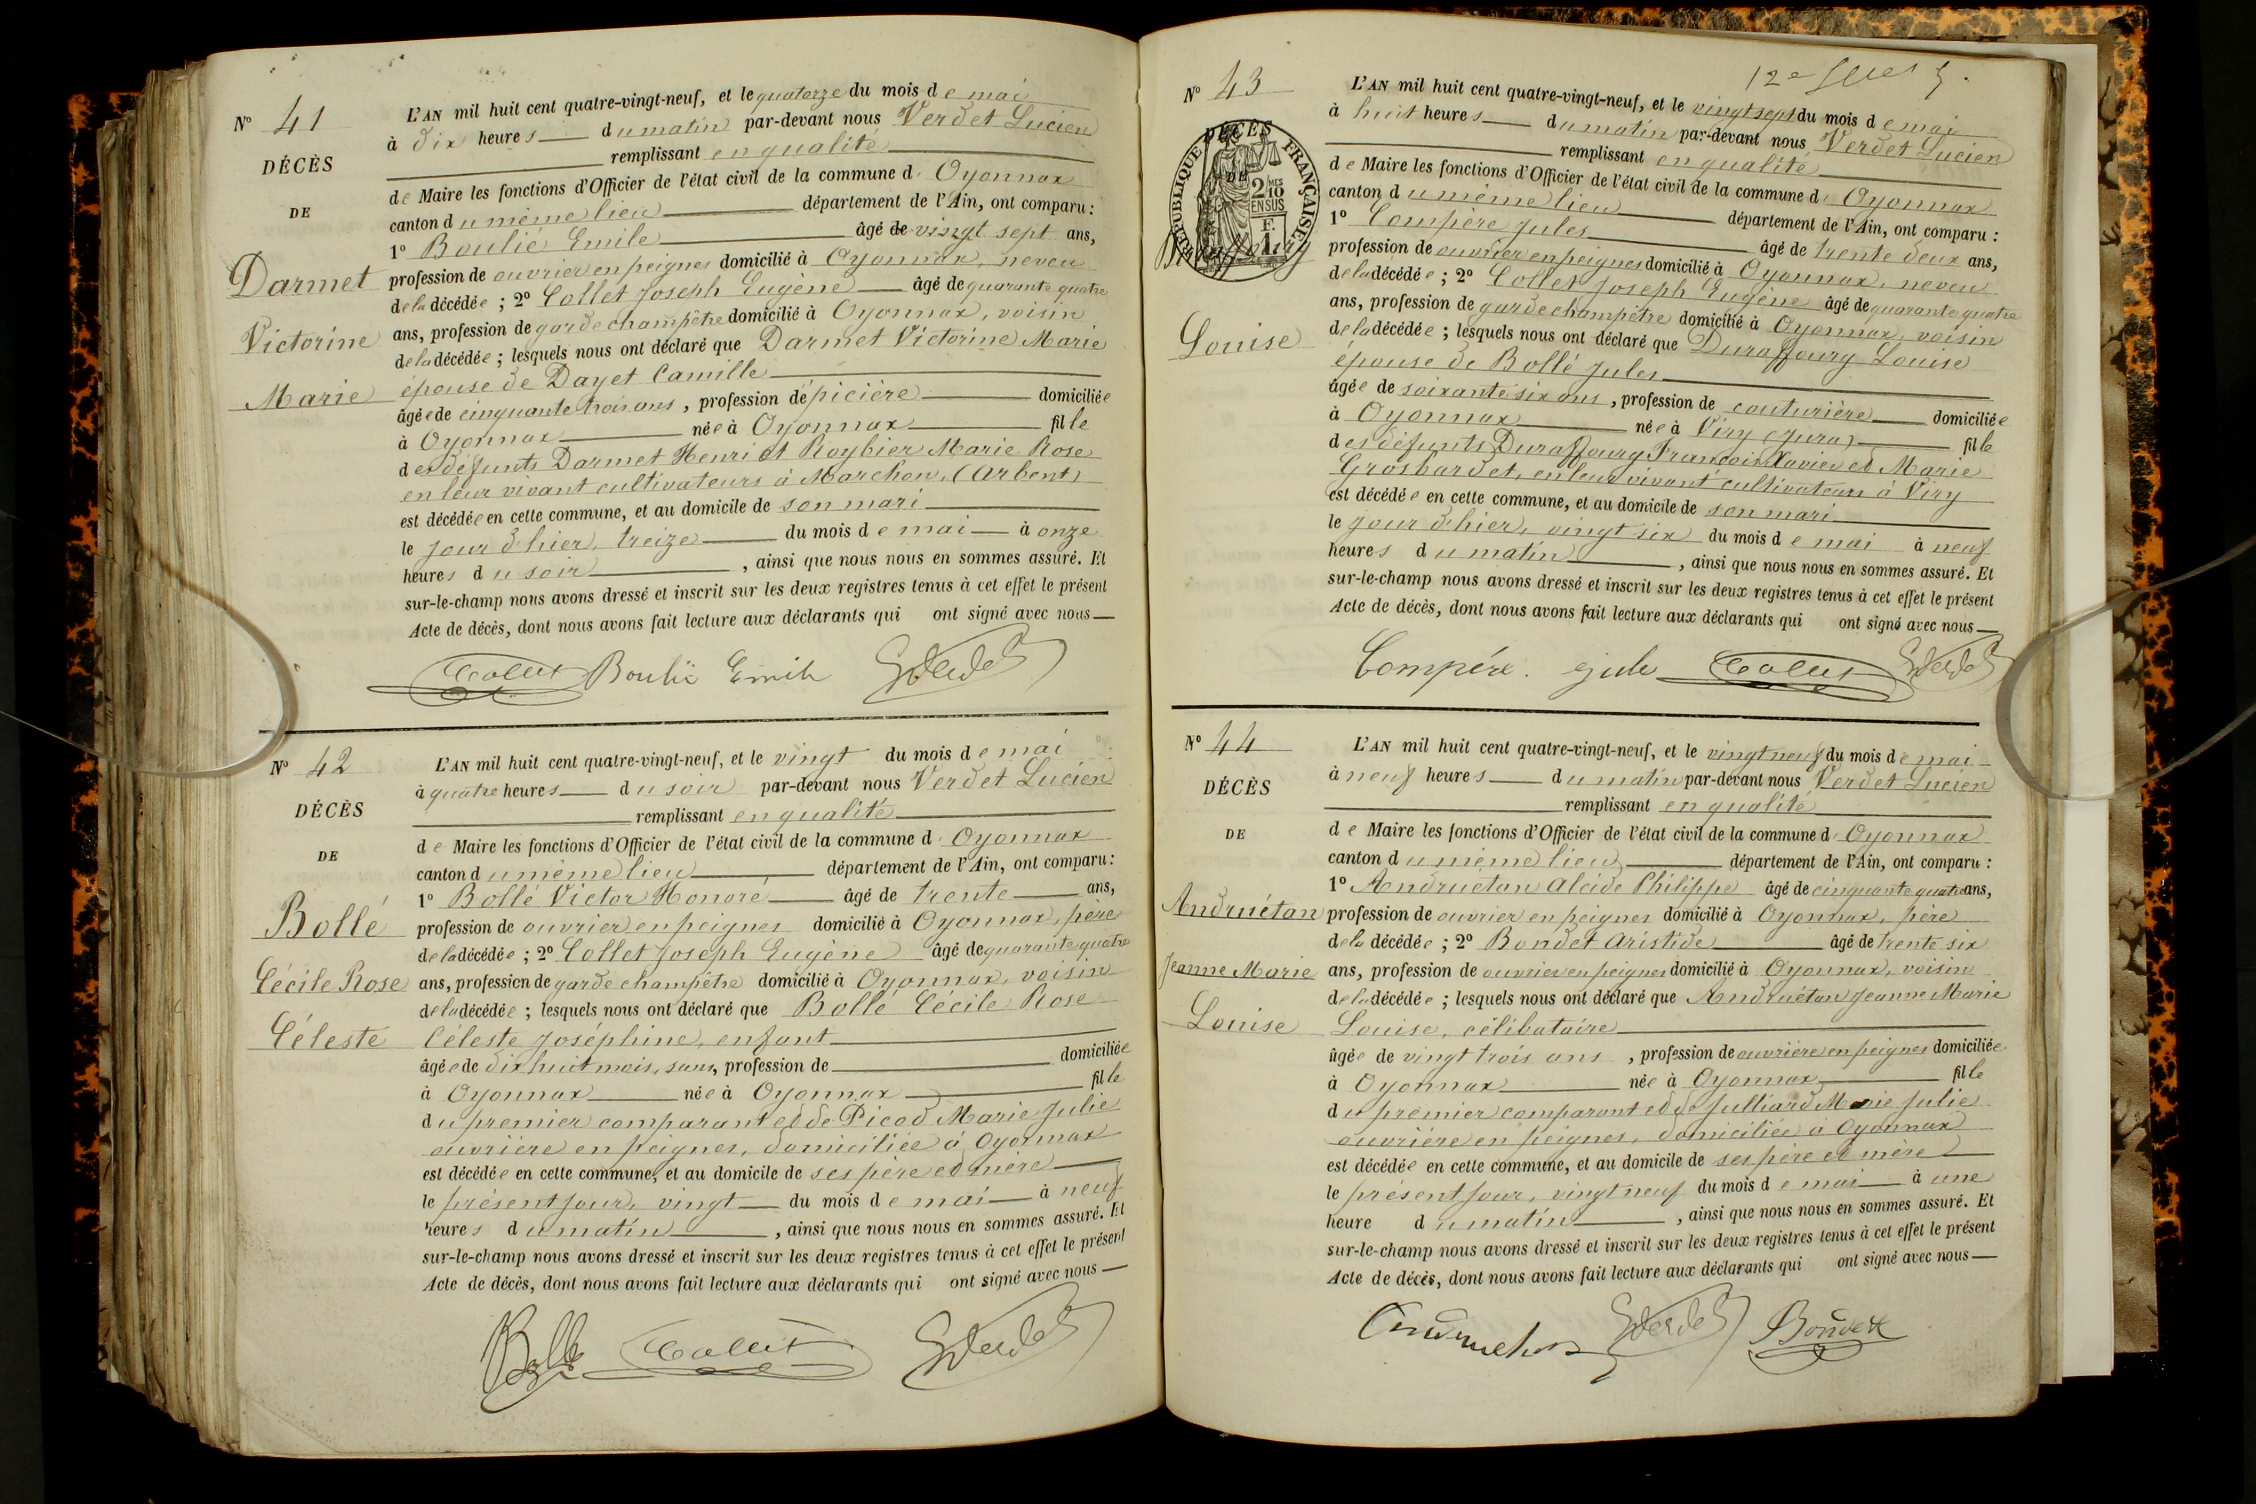 N° 41
DÉCÈS
DE
Darmet
Victorine
Marie
L'AN mil huit cent quatre-vingt-neuf, et le quatorze du mois de mai
à dix heures du matin par-devant nous Verdet Lucien
remplissant en qualité
de Maire les fonctions d'Officier de l'état civil de la commune d'Oyonnax
canton du même lieu département de l'Ain, ont comparu :
1° Boulié Emile âgé de vingt sept ans,
profession de ouvrier en peignes domicilié à Oyonnax, neveu
de la décédée ; 2° Collet Joseph Eugène âgé de quarante quatre
ans, profession de garde champêtre domicilié à Oyonnax, voisin
de la décédée ; lesquels nous ont déclaré que Darmet Victorine Marie
épouse de Dayet Camille
âgée de cinquante trois ans, profession d'épicière domiciliée
à Oyonnax née à Oyonnax fille
des défunts Darmet Henri et Roybier Marie Rose
en leur vivant cultivateurs à Marchon, (Arbent)
est décédée en cette commune, et au domicile de son mari
le jour d'hier, treize du mois de mai à onze
heures du soir, ainsi que nous nous en sommes assuré. Et
sur-le-champ nous avons dressé et inscrit sur les deux registres tenus à cet effet le présent
Acte de décès, dont nous avons fait lecture aux déclarants qui ont signé avec nous
Collet Boulié Emile Verdet
N° 42
DÉCÈS
DE
Bollé
Cécile Rose
Céleste
L'AN mil huit cent quatre-vingt-neuf, et le vingt du mois de mai
à quatre heures du soir par-devant nous Verdet Lucien
remplissant en qualité
de Maire les fonctions d'Officier de l'état civil de la commune d'Oyonnax
canton du même lieu département de l'Ain, ont comparu :
1° Bollé Victor Honoré âgé de trente ans,
profession de ouvrier en peignes domicilié à Oyonnax, père
de la décédée ; 2° Collet Joseph Eugène âgé de quarante quatre
ans, profession de garde champêtre domicilié à Oyonnax, voisin
de la décédée ; lesquels nous ont déclaré que Bollé Cécile Rose
Céleste Joséphine, enfant
âgée de dix huit mois, sans, profession de domiciliée
à Oyonnax née à Oyonnax fille
du premier comparant et de Picod Marie Julie
ouvrière en peignes, domiciliée à Oyonnax
est décédée en cette commune, et au domicile de ses père et mère
le présent jour, vingt du mois de mai à neuf
heures du matin, ainsi que nous nous en sommes assuré. Et
sur-le-champ nous avons dressé et inscrit sur les deux registres tenus à cet effet le présent
Acte de décès, dont nous avons fait lecture aux déclarants qui ont signé avec nous
Bollé Collet Verdet
12e
N° 43
DÉCÈS
DE
RÉPUBLIQUE FRANÇAISE
2/10 EN SUS
1 F.
Duraffourg
Louise
L'AN mil huit cent quatre-vingt-neuf, et le vingt sept du mois de mai
à huit heures du matin par-devant nous Verdet Lucien
remplissant en qualité
de Maire les fonctions d'Officier de l'état civil de la commune d'Oyonnax
canton du même lieu département de l'Ain, ont comparu :
1° Compère Jules âgé de trente deux ans,
profession de ouvrier en peignes domicilié à Oyonnax, neveu
de la décédée ; 2° Collet Joseph Eugène âgé de quarante quatre
ans, profession de garde champêtre domicilié à Oyonnax, voisin
de la décédée ; lesquels nous ont déclaré que Duraffourg Louise
épouse de Bollé Jules
âgée de soixante six ans, profession de couturière domiciliée
à Oyonnax née à Viry (Jura) fille
des défunts Duraffourg François Xavier et Marie
Grosbardet, en leur vivant cultivateurs à Viry
est décédée en cette commune, et au domicile de son mari
le jour d'hier, vingt six du mois de mai à neuf
heures du matin, ainsi que nous nous en sommes assuré. Et
sur-le-champ nous avons dressé et inscrit sur les deux registres tenus à cet effet le présent
Acte de décès, dont nous avons fait lecture aux déclarants qui ont signé avec nous
Compère Jule Collet Verdet
N° 44
DÉCÈS
DE
Andruétan
Jeanne Marie
Louise
L'AN mil huit cent quatre-vingt-neuf, et le vingt neuf du mois de mai
à neuf heures du matin par-devant nous Verdet Lucien
remplissant en qualité
de Maire les fonctions d'Officier de l'état civil de la commune d'Oyonnax
canton du même lieu département de l'Ain, ont comparu :
1° Andruétan Alcide Philippe âgé de cinquante quatre ans,
profession de ouvrier en peignes domicilié à Oyonnax, père
de la décédée ; 2° Bondet Aristide âgé de trente six
ans, profession de ouvrier en peignes domicilié à Oyonnax, voisin
de la décédée ; lesquels nous ont déclaré que Andruétan Jeanne Marie
Louise, célibataire
âgée de vingt trois ans, profession de ouvrière en peignes domiciliée
à Oyonnax née à Oyonnax fille
du premier comparant et de Julliard Marie Julie
ouvrière en peignes, domiciliée à Oyonnax
est décédée en cette commune, et au domicile de ses père et mère
le présent jour, vingt neuf du mois de mai à une
heure du matin, ainsi que nous nous en sommes assuré. Et
sur-le-champ nous avons dressé et inscrit sur les deux registres tenus à cet effet le présent
Acte de décès, dont nous avons fait lecture aux déclarants qui ont signé avec nous
Verdet Bondet